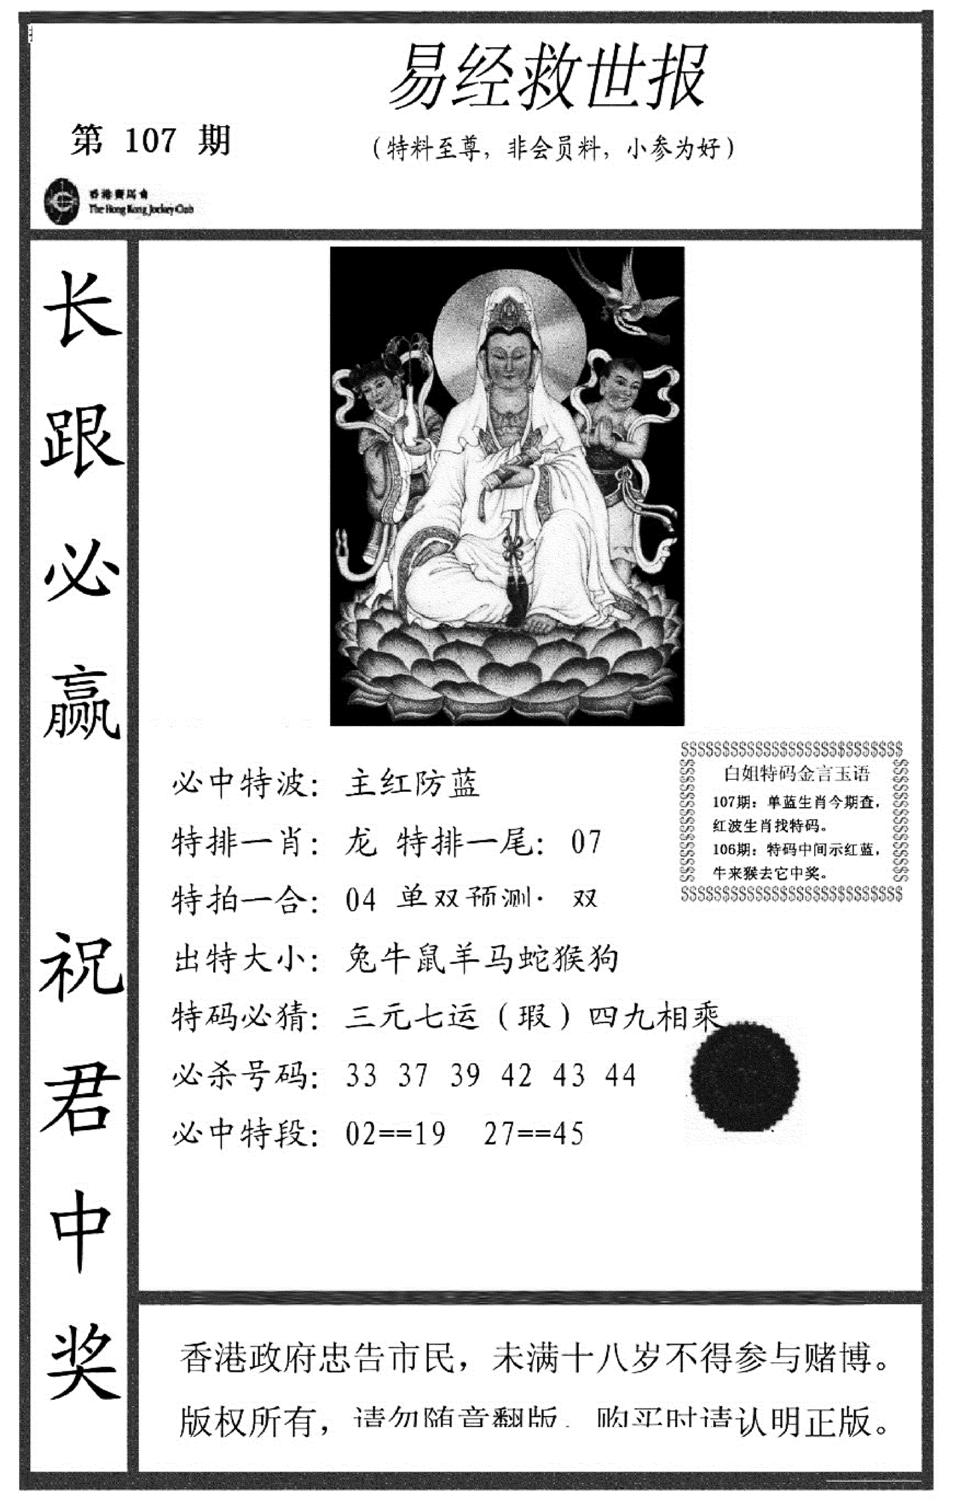 易经救世报
第 107 期
（特料至尊，非会员料，小参为好）
香港賽馬會
The Hong Kong Jockey Club
长跟必赢 祝君中奖
必中特波：主红防蓝
特排一肖：龙 特排一尾：07
特拍一合：04 单双预测： 双
出特大小：兔牛鼠羊马蛇猴狗
特码必猜：三元七运（瑕）四九相乘
必杀号码：33 37 39 42 43 44
必中特段：02==19 27==45
$$$$$$$$$$$$$$$$$$$$$$$$$$$
白姐特码金言玉语
107期：单蓝生肖今期查，
红波生肖找特码。
106期：特码中间示红蓝，
牛来猴去它中奖。
$$$$$$$$$$$$$$$$$$$$$$$$$$$
香港政府忠告市民，未满十八岁不得参与赌博。
版权所有，请勿随意翻版。购买时请认明正版。